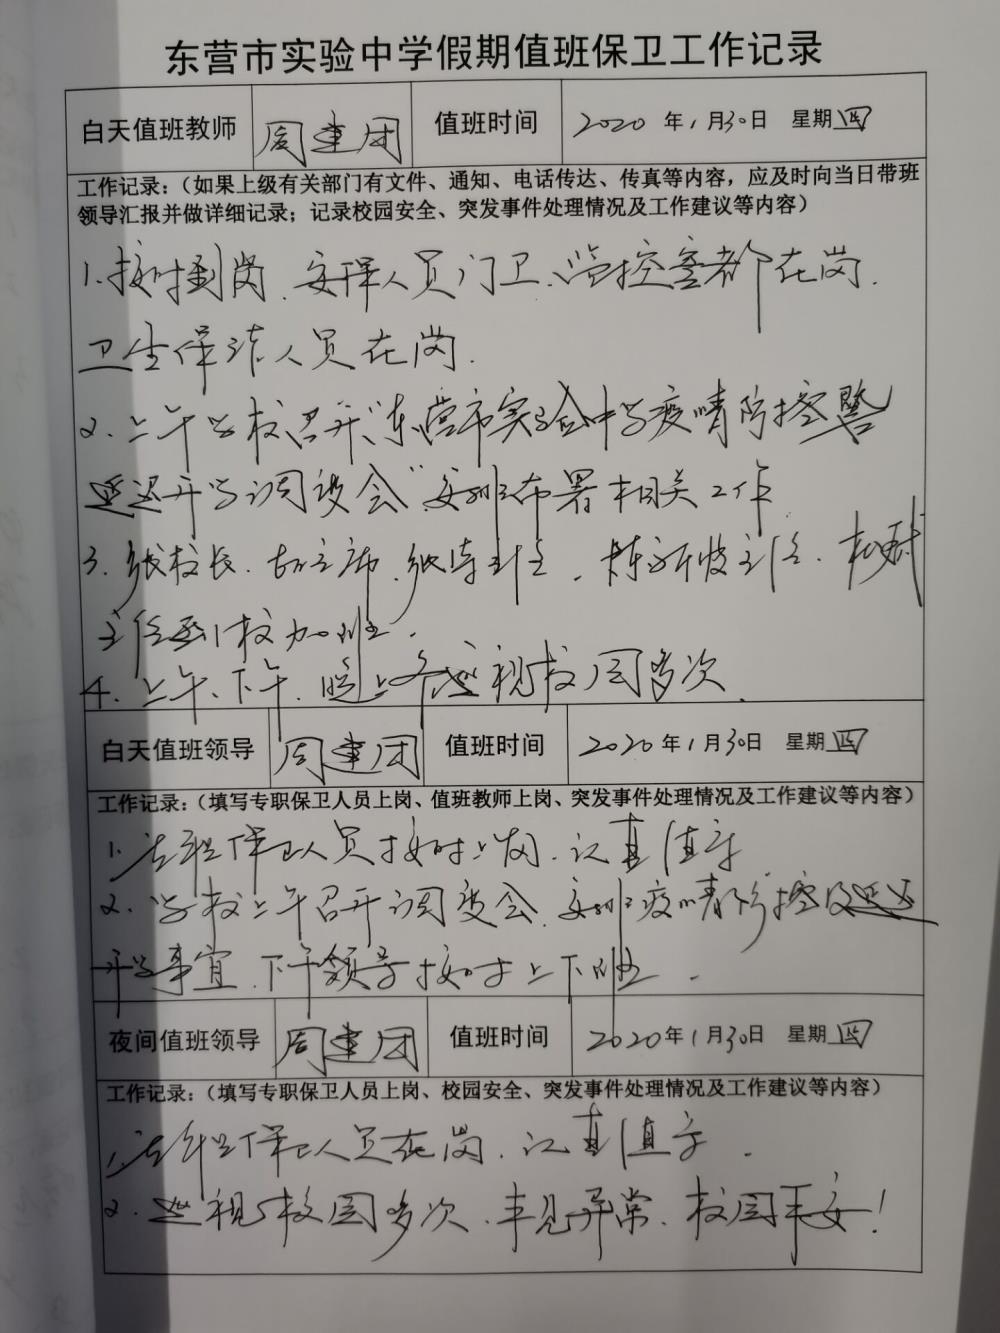 东营市实验中学假期值班保卫工作记录
白天值班教师 周建团 值班时间 2020年1月30日 星期四
工作记录：（如果上级有关部门有文件、通知、电话传达、传真等内容，应及时向当日带班
领导汇报并做详细记录；记录校园安全、突发事件处理情况及工作建议等内容）
1.按时到岗、安保人员门卫、监控室都在岗.
卫生保洁人员在岗.
2.上午学校召开“东营市实验中学疫情防控暨
延迟开学调度会”安排布署相关工作
3.张校长、主席、张主任、陈主任、
主任到校加班.
4.上午、下午、晚上各巡视校园多次.
白天值班领导 周建团 值班时间 2020年1月30日 星期四
工作记录：（填写专职保卫人员上岗、值班教师上岗、突发事件处理情况及工作建议等内容）
1.专职保卫人员按时上岗、认真值守
2.学校上午召开调度会、安排疫情防控及延迟
开学事宜.下午领导按时上下班.
夜间值班领导 周建团 值班时间 2020年1月30日 星期四
工作记录：（填写专职保卫人员上岗、校园安全、突发事件处理情况及工作建议等内容）
1.专职保卫人员在岗、认真值守.
2.巡视校园多次、未见异常、校园平安！